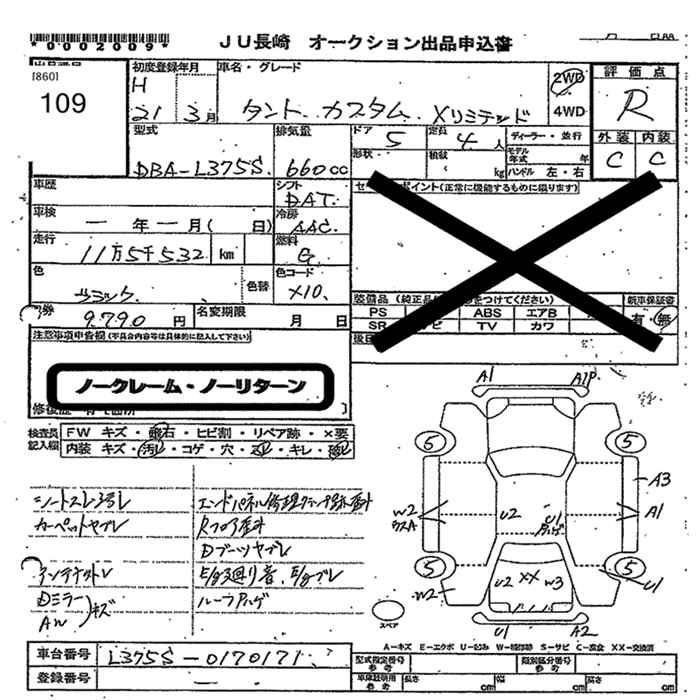 *0002009*
JU長崎 オークション出品申込書
[860]
109
初度登録年月 車名・グレード
H 21 3月
タント カスタム Xリミテッド
2WD
4WD
評価点
R
外装 内装
C C
型式
DBA-L375S
排気量
660cc
ドア 5
定員 4人
形状
積載 kg
ディーラー・並行
モデル年式 年
ハンドル 左・右
車歴
シフト
DAT
車検
一年一月(日)
冷房
AAC
走行
11万5千532 km
燃料
G
色
ブラック
色替
色コード
X10
券
9790円
名変期限 月 日
ポイント(正常に機能するものに限ります)
装備品
PS ABS エアB
SR TV カワ
新車保証書
有・無
注意事項申告欄(不具合内容等は具体的に記入して下さい)
ノークレーム・ノーリターン
検査員記入欄
FW キズ・飛石・ヒビ割・リペア跡・×要
内装 キズ・汚レ・コゲ・穴・・キレ・
シートスレ3号し
カーペットヤブレ
アンテナトレ
Dミラー キズ
AW
エンドパネル修理クランプ跡歪ミ
Rフロア歪ミ
Dブーツヤブレ
E/g廻り音、E/gブレ
ルーフハゲ
A1 A1P
5 5
W2
A3
U2 U1
A1
5 5
W2
U2 XX W3
U1
U1 A2
スペア
A-キズ E-エクボ U-凹み W-補修跡 S-サビ C-腐食 XX-交換済
車台番号 L375S-0170171
登録番号 一
型式指定番号参考
類別区分番号参考
車庫証明用参考 長さ cm 幅 cm 高さ cm